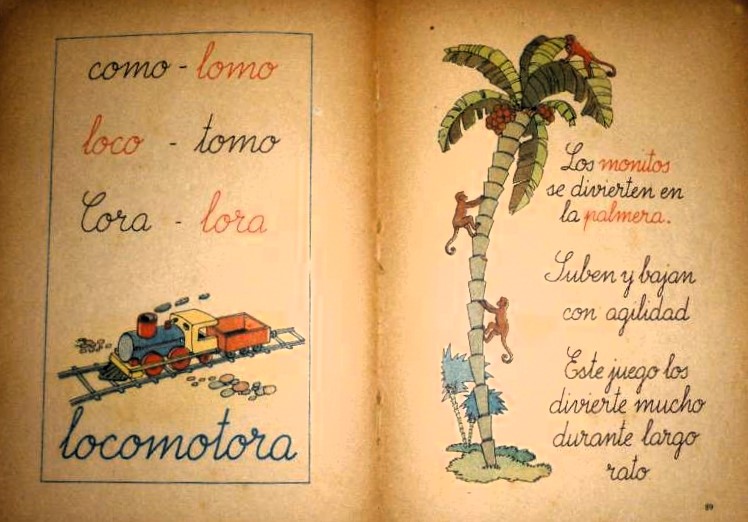 como - lomo
loco - tomo
Cora - lora
locomotora
Los monitos
se divierten en
la palmera.
Suben y bajan
con agilidad
Este juego los
divierte mucho
durante largo
rato
89